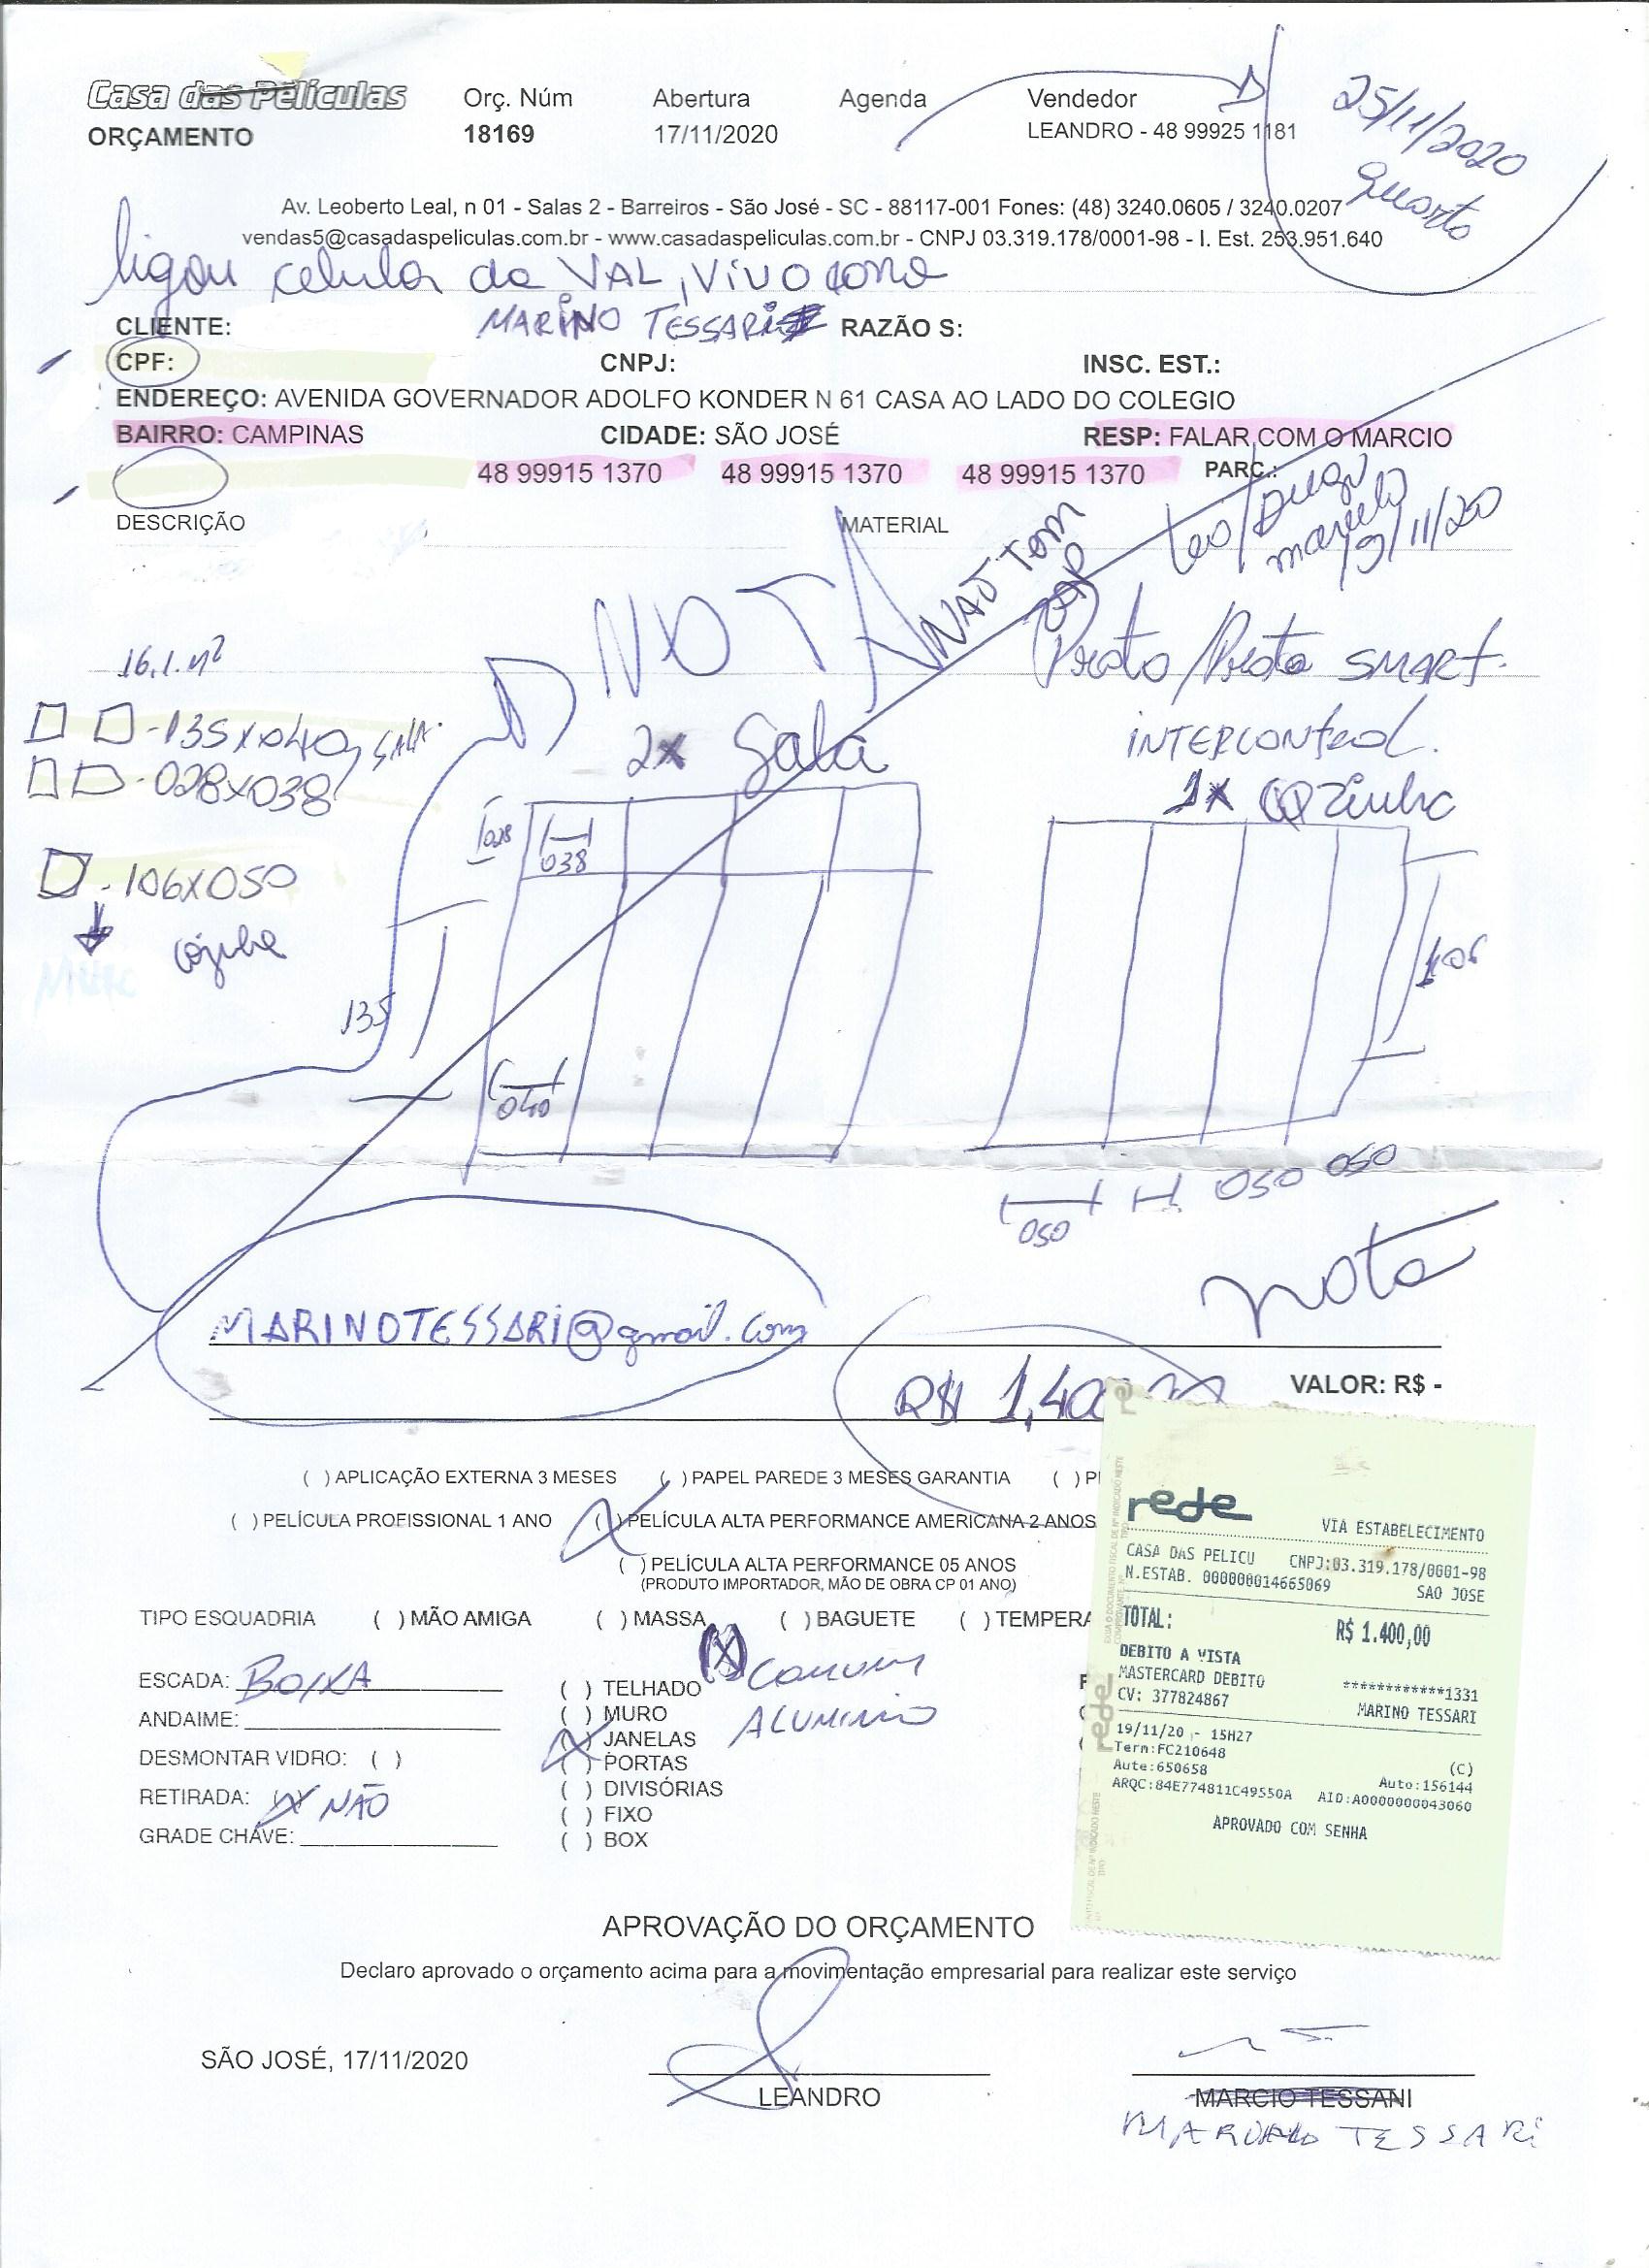 Casa das Películas
ORÇAMENTO
Orç. Núm
18169
Abertura
17/11/2020
Agenda
Vendedor
LEANDRO - 48 99925 1181
25/11/2020
Av. Leoberto Leal, n 01 - Salas 2 - Barreiros - São José - SC - 88117-001 Fones: (48) 3240.0605 / 3240.0207
vendas5@casadaspeliculas.com.br - www.casadaspeliculas.com.br - CNPJ 03.319.178/0001-98 - I. Est. 253.951.640
ligou celular da VAL, VIVO
CLIENTE: MARINO TESSARI RAZÃO S:
CPF: CNPJ: INSC. EST.:
ENDEREÇO: AVENIDA GOVERNADOR ADOLFO KONDER N 61 CASA AO LADO DO COLEGIO
BAIRRO: CAMPINAS CIDADE: SÃO JOSÉ RESP: FALAR COM O MARCIO
48 99915 1370 48 99915 1370 48 99915 1370 PARC.:
DESCRIÇÃO MATERIAL
NOTA
NAO TEM
19/11/20
16.1.M²
Preto/Preto SMART.
INTERCONTROL.
135X040 SALA
028X038
2x Sala
1x Cozinha
028
038
106X050
cozinha
135
106
040
050
050 050
nota
MARINOTESSARI@gmail.com
R$ 1,40
VALOR: R$ -
( ) APLICAÇÃO EXTERNA 3 MESES ( ) PAPEL PAREDE 3 MESES GARANTIA ( )
( ) PELÍCULA PROFISSIONAL 1 ANO (X) PELÍCULA ALTA PERFORMANCE AMERICANA 2 ANOS
( ) PELÍCULA ALTA PERFORMANCE 05 ANOS
(PRODUTO IMPORTADOR, MÃO DE OBRA CP 01 ANO)
TIPO ESQUADRIA ( ) MÃO AMIGA ( ) MASSA ( ) BAGUETE ( ) TEMPERA
(X) COMUM
ALUMINIO
ESCADA: BAIXA
ANDAIME:
DESMONTAR VIDRO: ( )
RETIRADA: (X) NÃO
GRADE CHAVE:
( ) TELHADO
( ) MURO
(X) JANELAS
( ) PORTAS
( ) DIVISÓRIAS
( ) FIXO
( ) BOX
rede
VIA ESTABELECIMENTO
CASA DAS PELICU CNPJ:03.319.178/0001-98
N.ESTAB. 000000014665069 SAO JOSE
TOTAL: R$ 1.400,00
DEBITO A VISTA
MASTERCARD DEBITO ************1331
CV: 377824867 MARINO TESSARI
19/11/20 - 15H27
Term:FC210648 (C)
Aute:650658 Auto:156144
ARQC:84E774811C49550A AID:A0000000043060
APROVADO COM SENHA
APROVAÇÃO DO ORÇAMENTO
Declaro aprovado o orçamento acima para a movimentação empresarial para realizar este serviço
SÃO JOSÉ, 17/11/2020
LEANDRO
MARCIO TESSANI
TESSARI